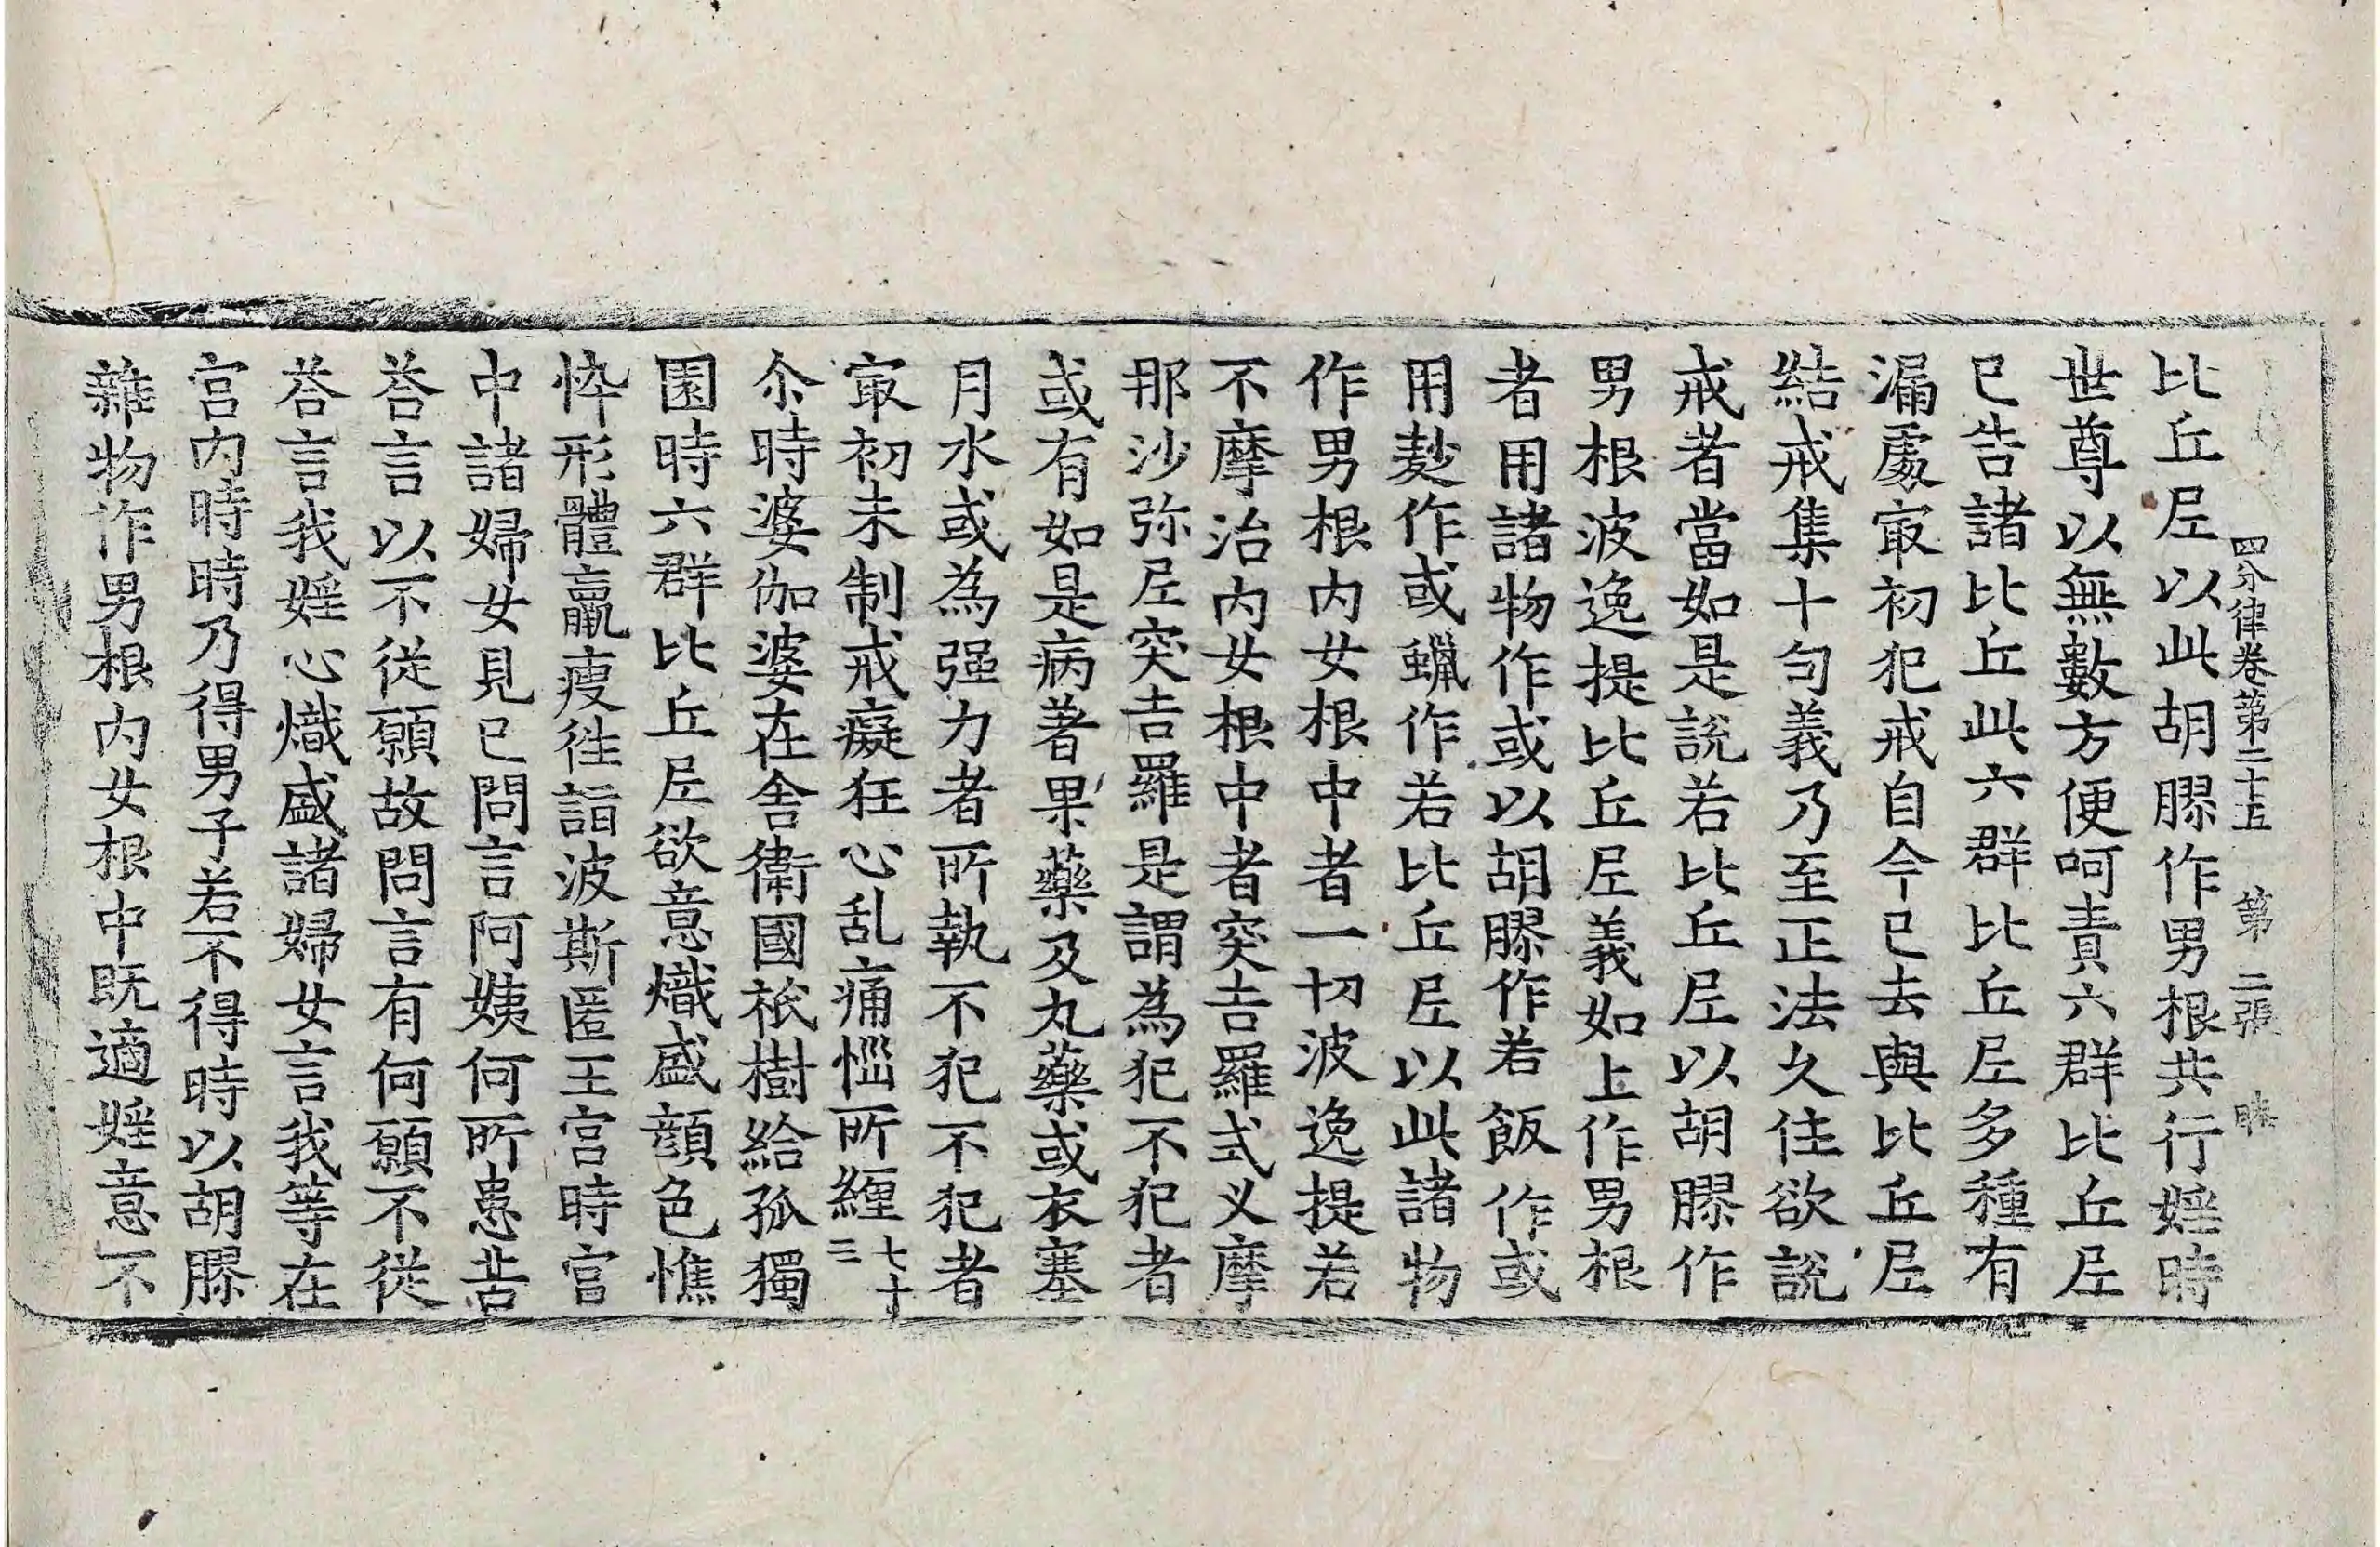 四分律卷第二十五 第二張
比丘尼以此胡膠作男根共行婬時
世尊以無數方便呵責六群比丘尼
已告諸比丘此六群比丘尼多種有
漏處㝡初犯戒自今已去與比丘尼
結戒集十句義乃至正法久住欲說
戒者當如是說若比丘尼以胡膠作
男根波逸提比丘尼義如上作男根
者用諸物作或以胡膠作若飯作或
用麨作或蠟作若比丘尼以此諸物
作男根內女根中者一切波逸提若
不摩治內女根中者突吉羅式叉摩
那沙弥尼突吉羅是謂為犯不犯者
或有如是病著果藥及丸藥或衣塞
月水或為强力者所執不犯不犯者
㝡初未制戒癡狂心乱痛惱所纏七十三
尒時婆伽婆在舍衛國祇樹給孤獨
園時六群比丘尼欲意熾盛顏色憔
悴形體羸瘦徃詣波斯匿王宮時宮
中諸婦女見已問言阿姨何所患苦
荅言以不從願故問言有何願不從
荅言我婬心熾盛諸婦女言我等在
宮內時時乃得男子若不得時以胡膠
雜物作男根內女根中既適婬意不